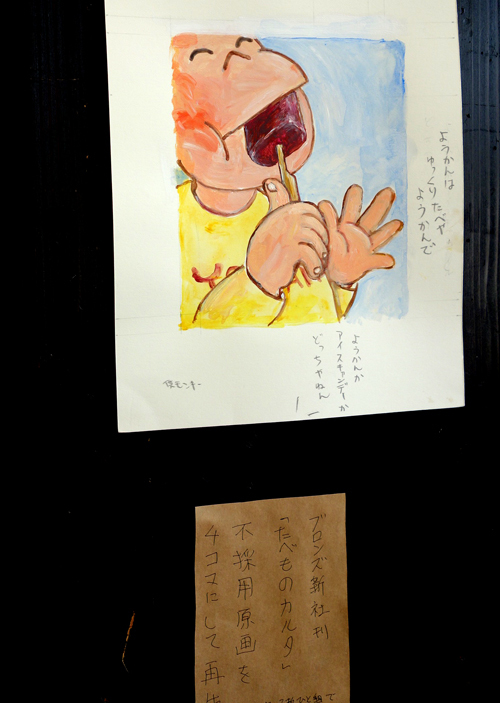 ようかんは
ゆっくりたべや
ようかんで
ようかんか
アイスキャンデーか
どっちやねん
モンキー
ブロンズ新社刊
「たべものカルタ」
不採用原画を
4コマにして再